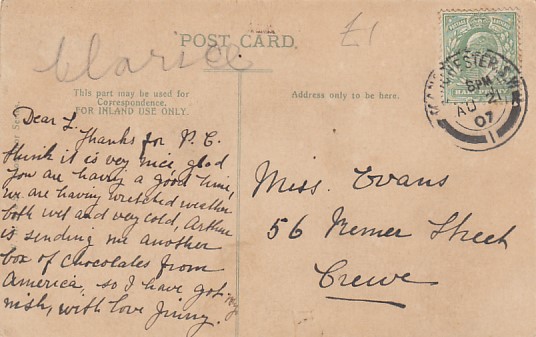 POST CARD.
£1
This part may be used for
Correspondence.
FOR INLAND USE ONLY.
Address only to be here.
Dear L. Thanks for P.C.
think it is very nice, glad
you are having a good time,
we are having wretched weather
both wet and very cold, Arthur
is sending me another
box of chocolates from
America, so I have got my
wish, with love Jinny.
Miss. Evans
56 Street
Crewe
8 PM
AU 21
07
1